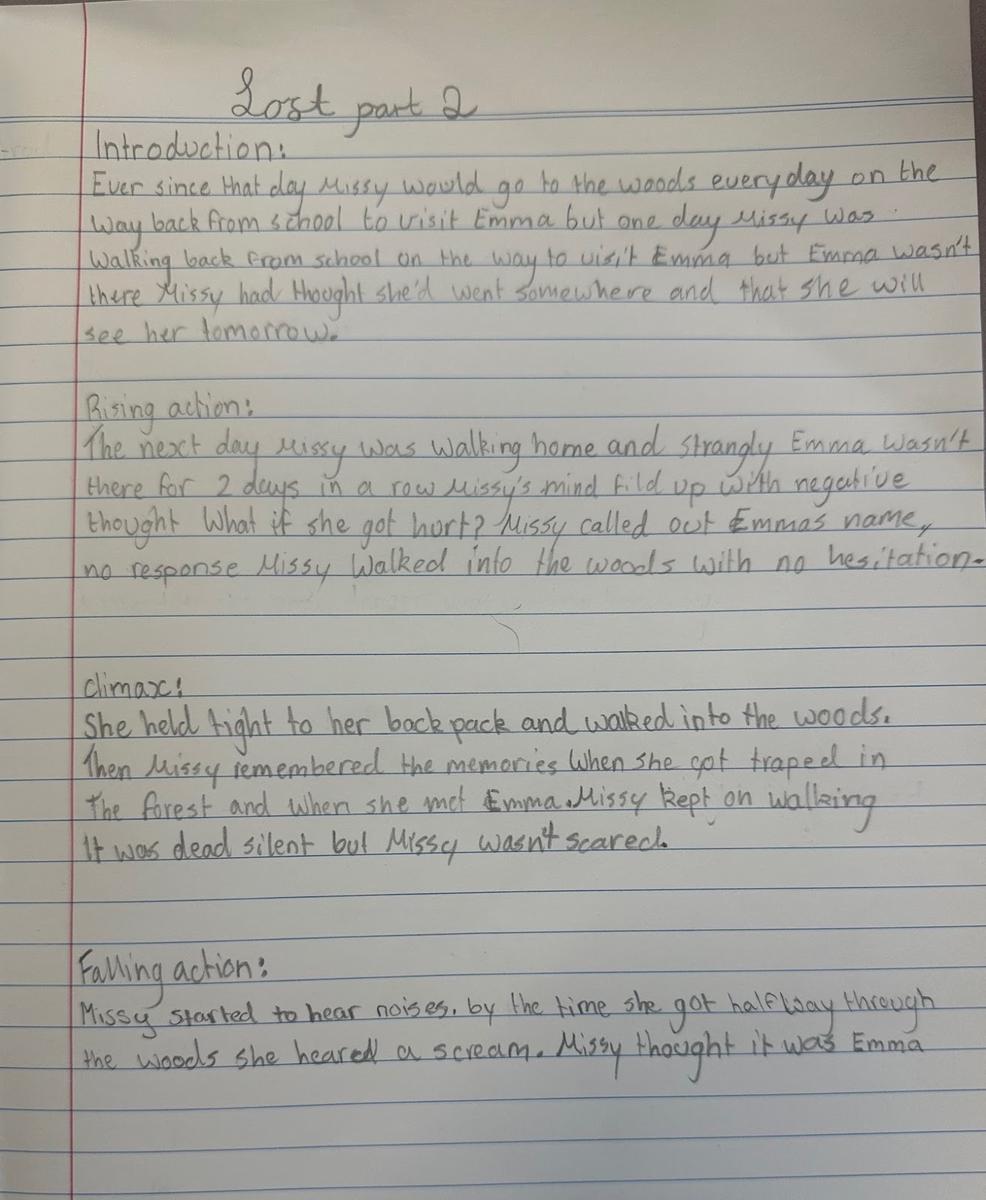 Lost part 2
Introduction:
Ever since that day Missy would go to the woods everyday on the
way back from school to visit Emma but one day Missy was
walking back from school on the way to visit Emma but Emma wasn't
there Missy had thought she'd went somewhere and that she will
see her tomorrow.
Rising action:
The next day Missy was walking home and strangly Emma wasn't
there for 2 days in a row Missy's mind fild up with negative
thought What if she got hurt? Missy called out Emmas name,
no response Missy walked into the woods with no hesitation.
climax:
She held tight to her backpack and walked into the woods.
Then Missy remembered the memories when she got traped in
the forest and when she met Emma. Missy kept on walking
It was dead silent but Missy wasn't scared.
Falling action:
Missy started to hear noises. by the time she got halfway through
the woods she heared a scream. Missy thought it was Emma